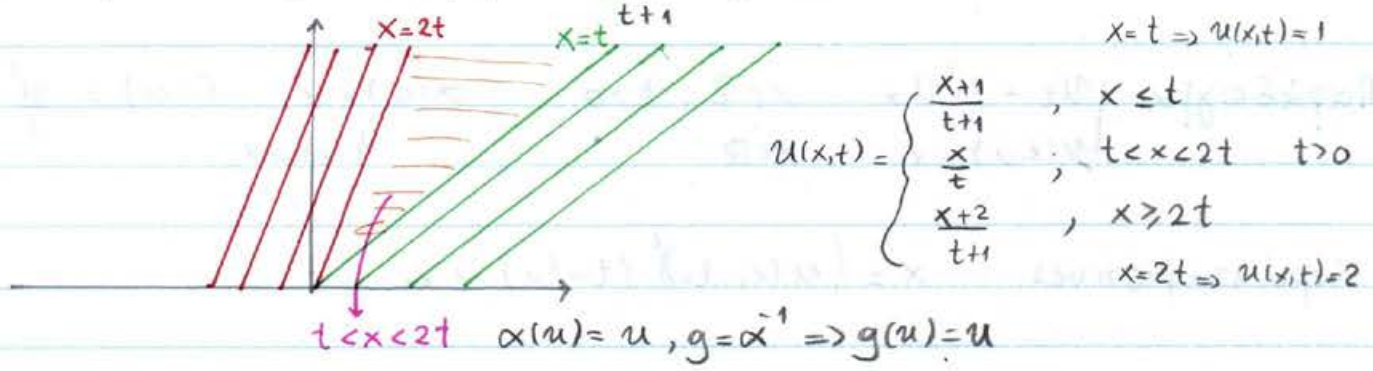 x=2t
x=t
t+1
x=t => u(x,t)=1
u(x,t) = { x+1/t+1 , x ≤ t
x/t , t<x<2t t>0
x+2/t+1 , x ⩾ 2t
x=2t => u(x,t)=2
t<x<2t α(u)=u, g=α⁻¹ => g(u)=u